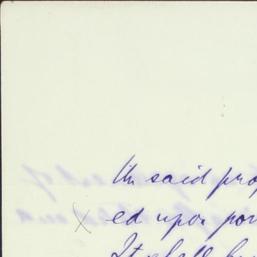 the said prop
ed upon por
It shall be